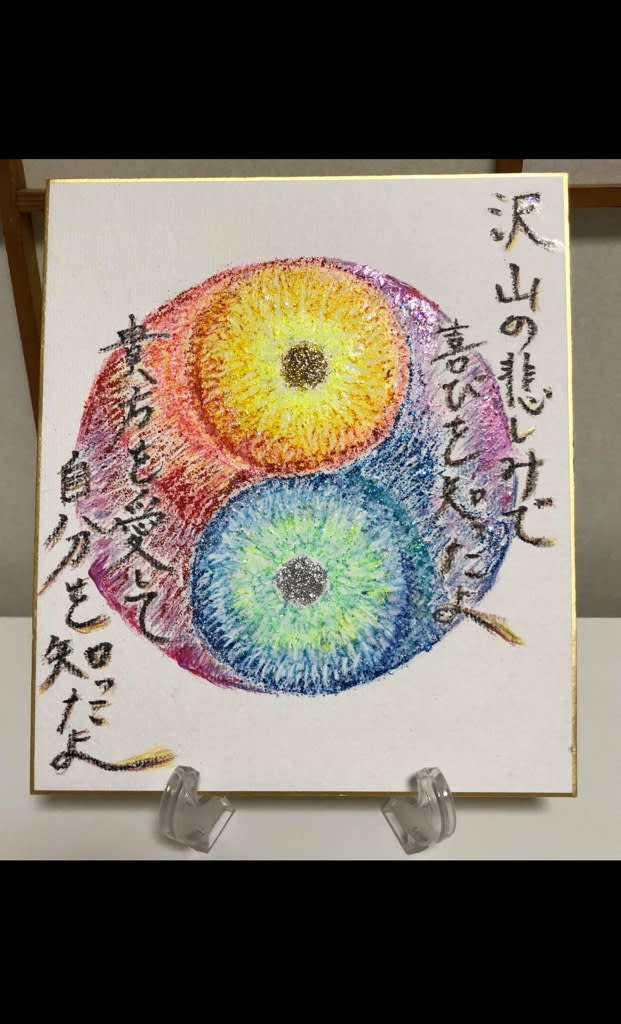 沢山の悲しみで
喜びを知ったよ
貴方を愛して
自分を知ったよ